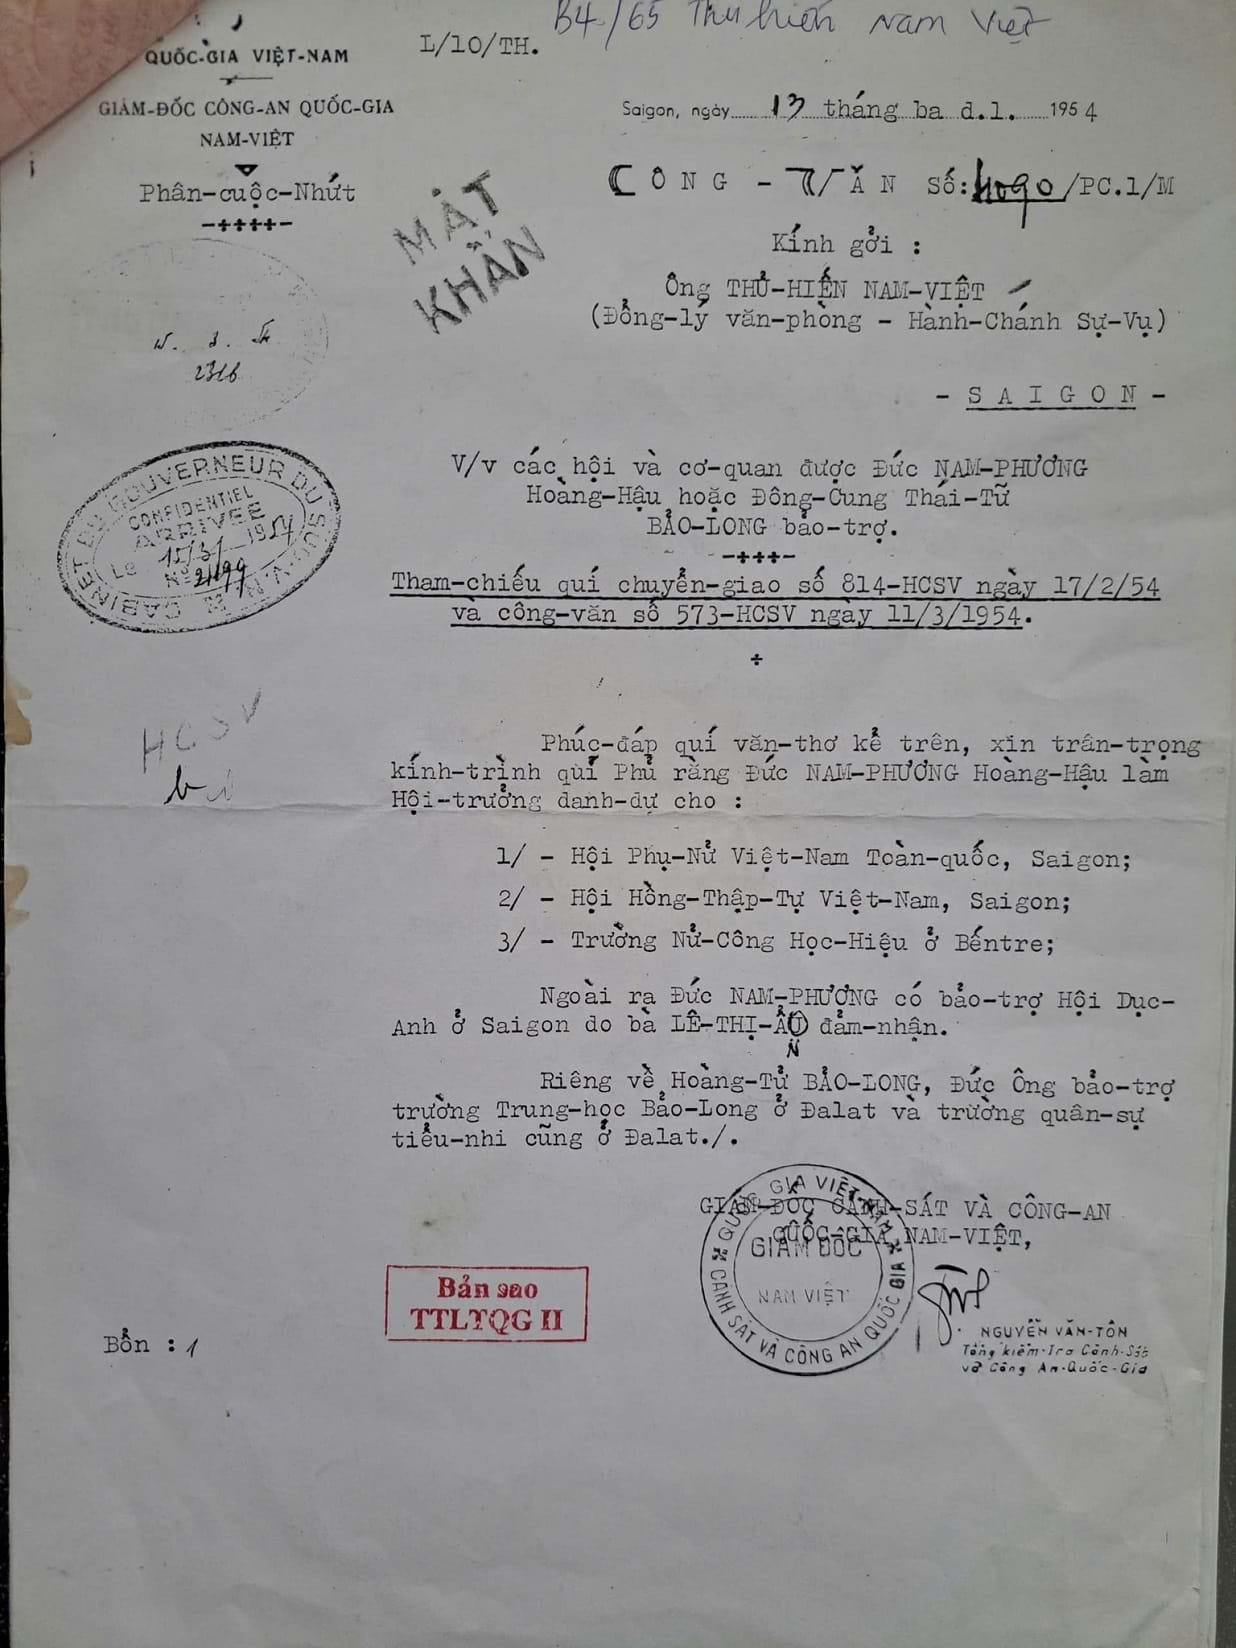 B4/65 Thủ hiến Nam Việt
L/10/TH.
QUỐC-GIA VIỆT-NAM
GIÁM-ĐỐC CÔNG-AN QUỐC-GIA
NAM-VIỆT
Phân-cuộc-Nhứt
-++++-
Saigon, ngày 13 tháng ba d.l. 1954
CÔNG - VĂN Số: /PC.1/M
MẬT
KHẨN
Kính gởi :
Ông THỦ-HIẾN NAM-VIỆT
(Đổng-lý văn-phòng - Hành-Chánh Sự-Vụ)
- SAIGON -
CABINET DU GOUVERNEUR DU SUD-V.N.
CONFIDENTIEL
ARRIVÉE
Le 15/3/ 1954
V/v các hội và cơ-quan được Đức NAM-PHƯƠNG
Hoàng-Hậu hoặc Đông-Cung Thái-Tử
BẢO-LONG bảo-trợ.
-++++-
Tham-chiếu quí chuyển-giao số 814-HCSV ngày 17/2/54
và công-văn số 573-HCSV ngày 11/3/1954.
÷
HCSV
Phúc-đáp quí văn-thơ kể trên, xin trân-trọng
kính-trình quí Phủ rằng Đức NAM-PHƯƠNG Hoàng-Hậu làm
Hội-trưởng danh-dự cho :
1/ - Hội Phụ-Nử Việt-Nam Toàn-quốc, Saigon;
2/ - Hội Hồng-Thập-Tự Việt-Nam, Saigon;
3/ - Trường Nử-Công Học-Hiệu ở Bếntre;
Ngoài ra Đức NAM-PHƯƠNG có bảo-trợ Hội Dục-
Anh ở Saigon do bà LÊ-THỊ-ẨU đảm-nhận.
N
Riêng về Hoàng-Tử BẢO-LONG, Đức Ông bảo-trợ
trường Trung-học Bảo-Long ở Đalat và trường quân-sự
tiểu-nhi cũng ở Đalat./.
GIÁM-ĐỐC CẢNH-SÁT VÀ CÔNG-AN
QUỐC-GIA NAM-VIỆT,
QUỐC GIA VIỆT-NAM
CẢNH SÁT VÀ CÔNG AN QUỐC GIA
GIÁM ĐỐC
NAM VIỆT
Bản sao
TTLTQG II
NGUYỄN VĂN-TÔN
Tổng kiểm-Tra Cảnh-Sát
và Công An-Quốc-Gia
Bổn : 1